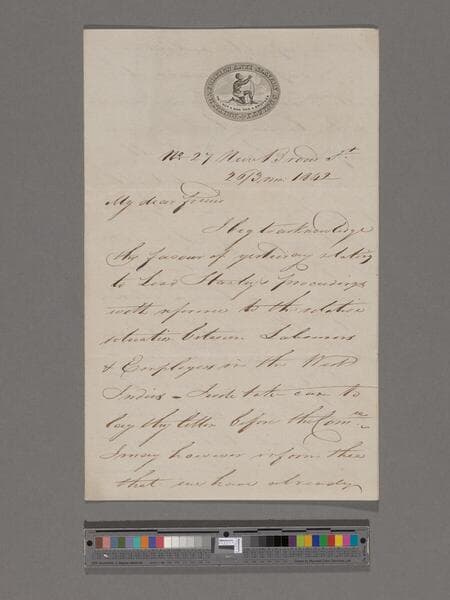 BRITISH AND FOREIGN ANTI-SLAVERY SOCIETY
AM I NOT A MAN AND A BROTHER
No 27 New Broad St
26/3mo 1842
My dear friend
I beg to acknowledge
thy favour of yesterday relating
to Lord Stanley's proceedings
with reference to the relative
situation between Labourers
& Employers in the West
Indies - I will take care to
lay thy letter before the Comee
I may however inform thee
that we have already